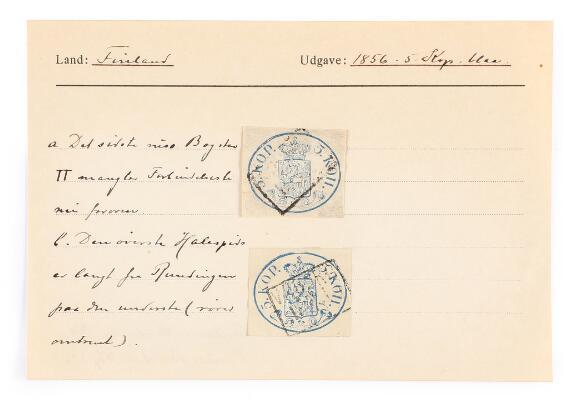 Land: Finland
Udgave: 1856 - 5 Kop. blaa.
a Det sidste russ. Bogstav
П mangler Forbindelseste
foroven.
b. Den överste Halespids
er langt fra Rundingen
paa den underste (rører
omtrent).
5. KOP. 5. КОП.
5. KOP. 5. КОП.